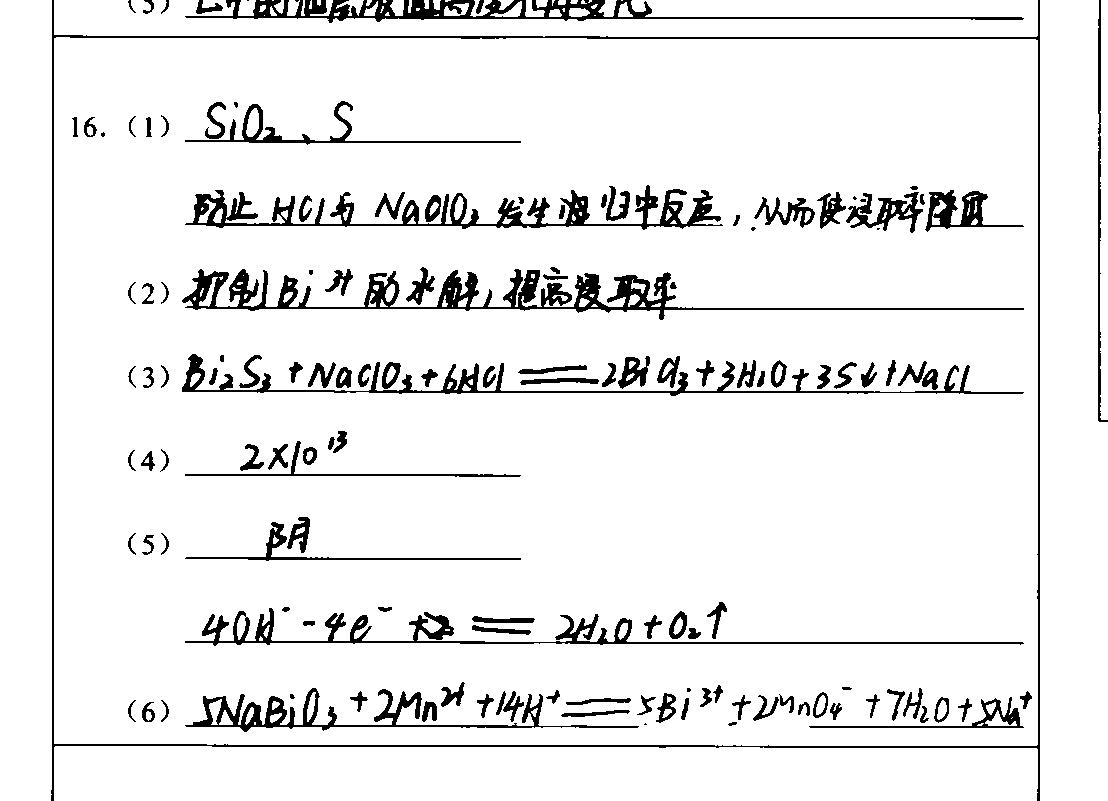 (5)
16. (1) SiO₂、S
防止HCl与NaClO₃发生归中反应，从而使浸取率降低
(2) 抑制Bi³⁺的水解，提高浸取率
(3) Bi₂S₃+NaClO₃+6HCl══2BiCl₃+3H₂O+3S↓+NaCl
(4) 2×10¹³
(5) 阴
4OH⁻-4e⁻══2H₂O+O₂↑
(6) 5NaBiO₃+2Mn²⁺+14H⁺══5Bi³⁺+2MnO₄⁻+7H₂O+5Na⁺